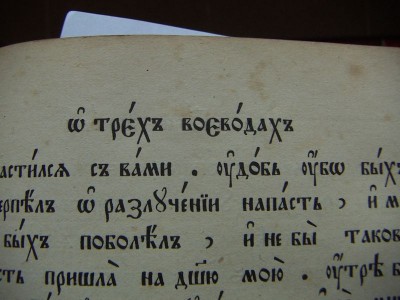 ѿ тре́хъ воево́дахъ
асти́лсѧ съ ва́ми . ᲂу҆до́бь ᲂу҆́бѡ бы́хъ
ерпѣ́лъ ѿ разлꙋче́нїи напа́сть , и҆ м
бы́хъ поболѣ́лъ , и҆ не бы̀ таков
сть пришла̀ на дш҃ю мою̀ . ᲂу҆трѣ б